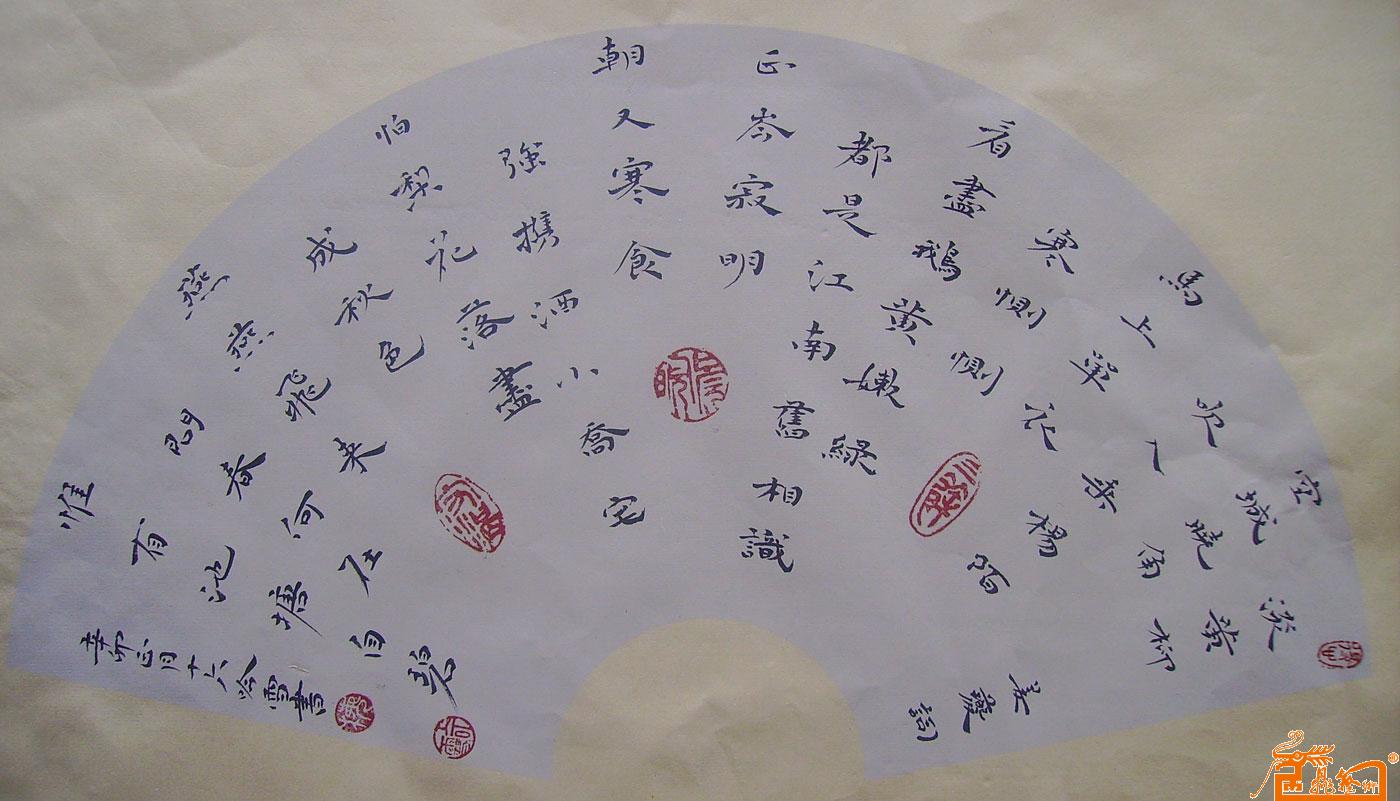 淡黄柳 姜夔詞
空城曉角
吹入垂楊陌
馬上單衣
寒惻惻
看盡鵝黄嫩綠
都是江南舊相識
正岑寂明
朝又寒食
強携酒小喬宅
怕梨花落盡
成秋色
燕燕飛来
問春何在
惟有池塘自碧
辛卯正月十六吟雪書